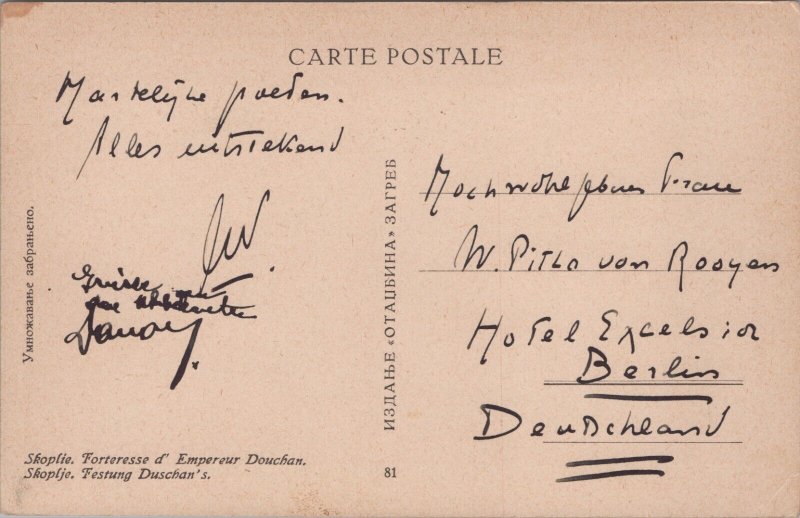 CARTE POSTALE
Hartelijke groeten.
Alles uitstekend
Grüsse
Hochwohlgeboren Frau
W. Pitlo von Rooyen
Hotel Excelsior
Berlin
Deutschland
Умножавање забрањено.
ИЗДАЊЕ «ОТАЏБИНА» ЗАГРЕБ
Skoplie. Forteresse d' Empereur Douchan.
Skoplje. Festung Duschan's.
81